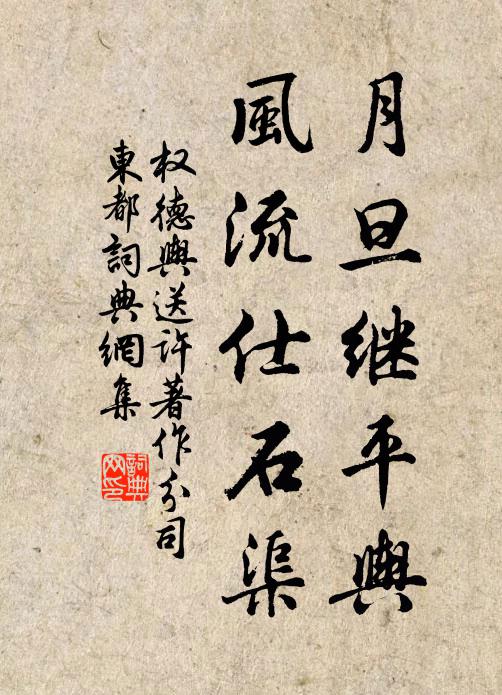 月旦继平舆
風流仕石渠
权德舆送許著作分司
東都詞典網集
詞典
网印